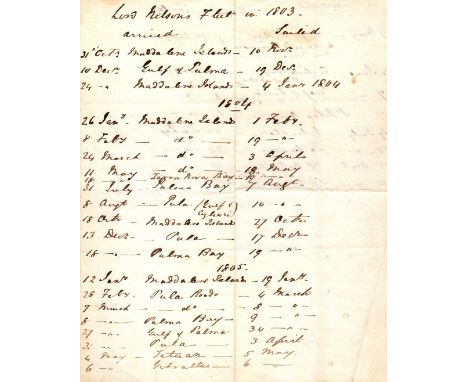 Lord Nelsons Fleet in 1803.
arrived Sailed
31st Octr Maddalene Islands - 10 Novr
10 Decr Gulf of Palma - 19 Decr
24 -"- Maddalene Islands - 4 Janr 1804
1804
26 Janr Maddalene Islands 1 Feby
8 Feby - do - 19 -"-
24 March - do - 3 April
11 May - do 18 May
Terra Nova Bay
31 July - Palma Bay 7 Augt
8 Augt - Pula (Gulf of Cagliari) 10 -"-
18 Octr - Maddalene Islands 27 Octr
13 Decr - Pula - 17 Decr
18 -"- Palma Bay 19 -"-
1805.
12 Janr Maddalene Islands - 19 Janr
28 Feby Pula Roads - 4 March
7 March - do - 8 -"-
8 -"- Palma Bay - 9 -"-
27 -"- Gulf of Palma 30 -"-
Pula - 3 April
4 May - Tetuan - 5 May
6 -"- Gibraltar - 6 -"-